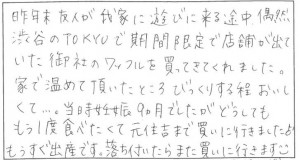 昨年末友人が我家に遊びに来る途中偶然
渋谷のTOKYUで期間限定で店舗が出て
いた御社のワッフルを買ってきてくれました。
家で温めて頂いたところびっくりする程おいし
くて…。当時妊娠9ヵ月でしたがどうしても
もう1度食べたくて元住吉まで買いに行きましたよ!
もうすぐ出産です。落ち付いたらまた買いに行きます☺